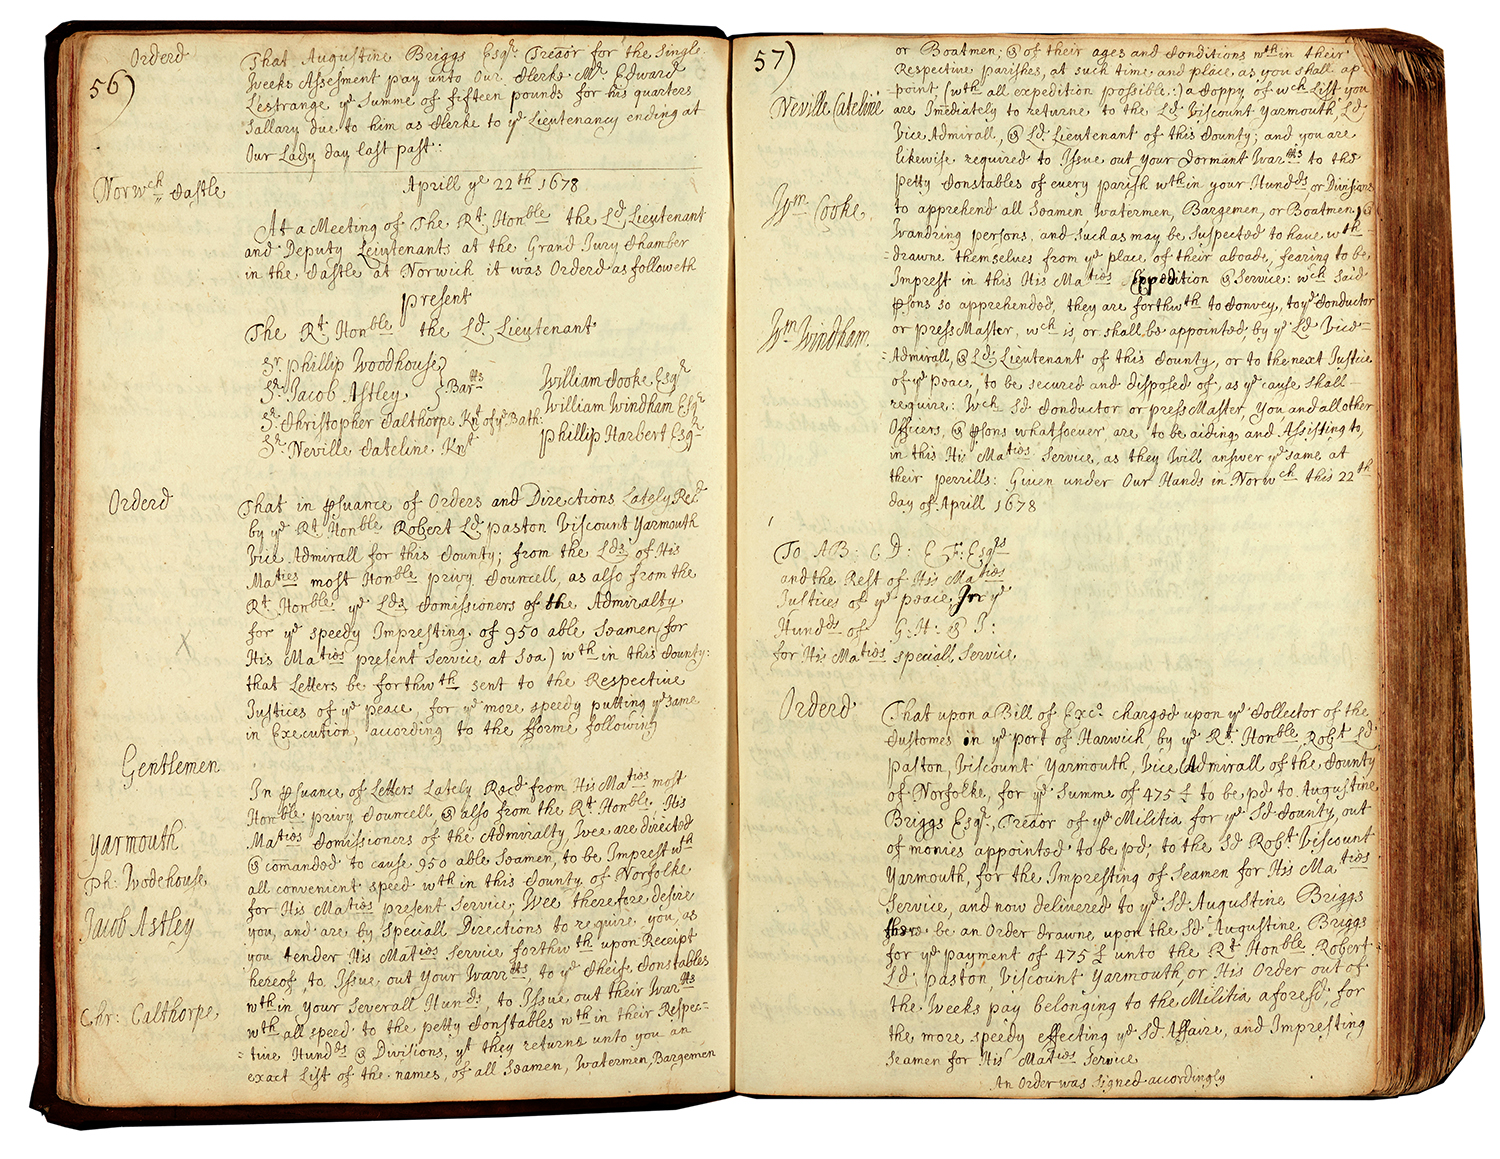 56)
Orderd
That Augustine Briggs Esqr. Treaor for the Single
Weeks Assesment pay unto Our Clerke Mr. Edward
Lestrange ye Summe of fifteen pounds for his quarters
Sallary due to him as Clerke to ye Lieutenancy ending at
Our Lady day last past::
Norwch Castle
Aprill ye 22th 1678
At a Meeting of The Rt. Honble the Ld. Lieutenant
and Deputy Lieutenants at the Grand Jury Chamber
in the Castle at Norwich it was Orderd as followeth
Present
The Rt. Honble the Ld. Lieutenant
Sr. Phillip Woodhouse
Sr. Jacob Astley } Bartts
Sr. Christopher Calthorpe Knt of ye Bath:
Sr. Neville Cateline Knt
William Cooke Esqr
William Windham Esqr
Phillip Harbert Esqr
Orderd
That in psuance of Orders and Directions Lately Recd
by ye Rt. Honble Robert Ld. Paston Viscount Yarmouth
Vice Admirall for this County; from the Lds. of His
Maties most Honble privy Councell, as also from the
Rt. Honble ye Lds Comissioners of the Admiralty
for ye speedy Impresting of 950 able Seamen (for
His Maties present Service at Sea) wthin this County:
that Letters be forthwth sent to the Respective
Justices of ye peace for ye more speedy putting ye same
in Execution, according to the fforme following
X
Gentlemen
In psuance of Letters Lately Recd from His Maties most
Honble privy Councell, & also from the Rt. Honble His
Maties Comissioners of the Admiralty, Wee are directed
& comanded to cause 950 able Seamen, to be Imprest wth
all convenient speed wthin this County of Norfolke
for His Maties present Service; Wee therefore desire
you, and are by Speciall Directions to require you, as
you tender His Maties Service forthwth upon Receipt
hereof, to Issue out Your Warrtts, to ye Cheife Constables
wthin your Severall Hunds to Issue out their Wartts
wth all speed to the petty Constables wthin their Respec-
=tive Hundds & Divisions, yt they returne unto you an
exact List of the names, of all Seamen, Watermen, Bargemen
Yarmouth
Ph: Wodehouse
Jacob Astley
Chr: Calthorpe
57)
or Boatmen; & of their ages and Conditions wthin their
Respective parishes, at such time and place as you shall ap-
-point (wth all expedition possible:) a Coppy of wch List you
are Imediately to returne to the Ld. Viscount Yarmouth, Ld
Vice Admirall, & Ld. Lieutenant of this County; and you are
likewise required to Issue out your Dormant Wartts to the
petty Constables of every parish wthin your Hundds, or Divisions
to apprehend all Seamen Watermen, Bargemen, or Boatmen, &
Wandring persons, and such as may be suspected to have wth-
=drawne themselves from ye place of their aboade, fearing to be
Imprest in this His Maties Expedition & Service: wch said
psons so apprehended, they are forthwth to convey, to ye Conductor
or press Master, wch is or shall be appointed, by ye Ld. Vice=
=Admirall, & Ld. Lieutenant of this County, or to the next Justice
of ye peace, to be secured and disposed of, as ye cause shall-
require: Wch Sd. Conductor or press Master, You and all other
Officers, & psons whatsoever are to be aiding and Assisting to,
in this His Maties Service, as they Will answer ye same at
their perrills: Given under Our Hands in Norwch this 22th
day of Aprill 1678
Neville Cateline
Wm Cooke
Wm Windham.
To AB: CD: EF: Esqrs
and the Rest of His Maties
Justices of ye peace, for ye
Hundds of G: H: & I:
for His Maties speciall Service
Orderd
That upon a Bill of Exc. charged upon ye Collector of the
Customes in ye port of Harwich, by ye Rt. Honble, Robt Ld.
Paston, Viscount Yarmouth, Vice Admirall of the County
of Norfolke, for ye Summe of 475 £ to be pd. to Augustine
Briggs Esqr., Treaor of ye Militia for ye Sd. County, out
of monies appointed to be pd; to the Sd Robt. Viscount
Yarmouth, for the Impresting of Seamen for His Maties
Service, and now delivered to ye Sd. Augustine Briggs
be an Order drawne upon the Sd. Augustine Briggs
for ye payment of 475 £ unto the Rt. Honble Robert
Ld. Paston, Viscount Yarmouth, or His Order out of
the Weeks pay belonging to the Militia aforesd: for
the more speedy effecting ye Sd. Affaire, and Impresting
Seamen for His Maties Service
An Order was Signed accordingly